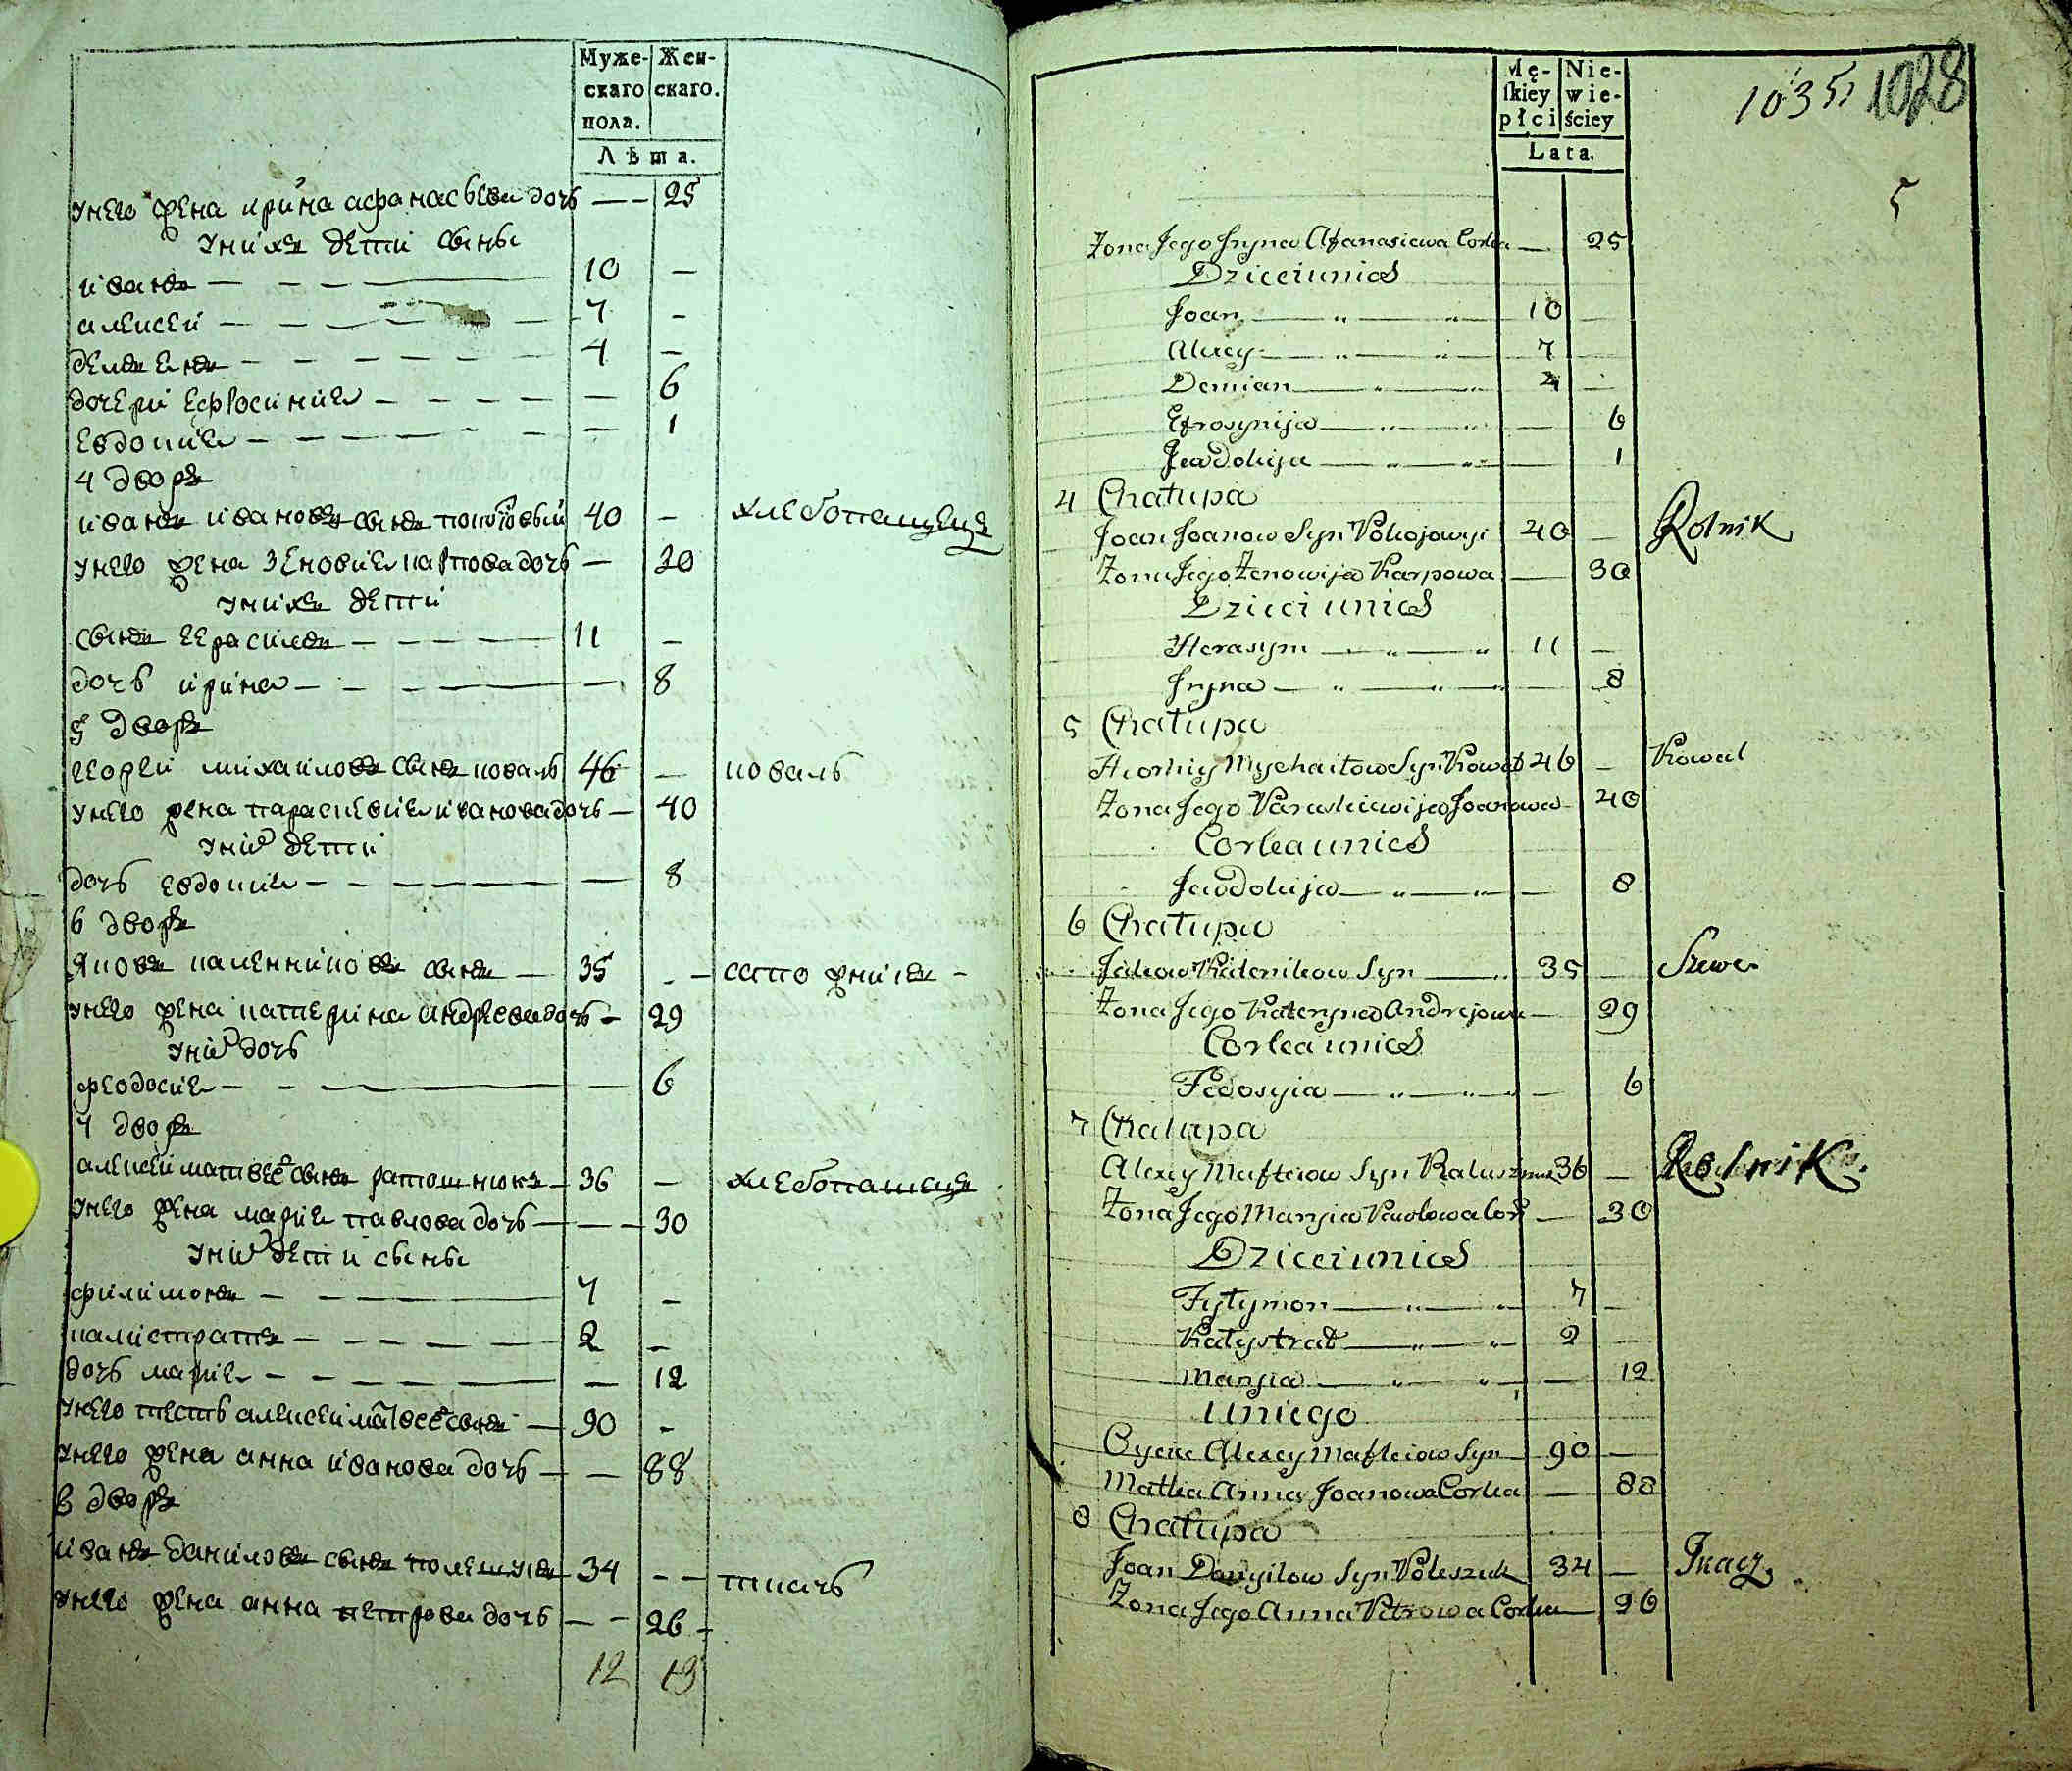 Муже-
скаго
пола.
Жен-
скаго.
Лѣта.
унего жена ирина афанасьева дочь — — 25
унихъ дети сыны
иванъ — 10 —
алексей — 7 —
демьенъ — 4 —
дочери ефросиния — — 6
евдокия — — 1
4 дворъ
иванъ ивановъ сынъ покоіовый 40 — хлебопашецъ
унего жена зеновия карпова дочь — 30
унихъ дети
сынъ герасимъ — 11 —
дочь ирина — — 8
5 дворъ
георгий михайловъ сынъ коваль 46 — коваль
унего жена параскевия иванова дочь — 40
уних дети
дочь евдокия — — 8
6 дворъ
яковъ каленниковъ сынъ — 35 — — сапожникъ —
унего жена катерина андреева дочь — 29
уних дочь
феодосия — — 6
7 дворъ
алексей матвеев сынъ ратошнюкъ — 36 — хлебопашецъ
унего жена мария павлова дочь — — — 30
уних дети сыны
филимонъ — 7 —
калистратъ — 2 —
дочь мария — — 12
унего тесть алексей матвеев сынъ — 90 —
унего жена анна иванова дочь — — 88
8 дворъ
иванъ даниловъ сынъ полешукъ 34 — — ткачь
унего жена анна петрова дочь — — 26 —
12 13
Mę-
skiey
płci
Nie-
wie-
ściey
Lata.
1035 1028
5
Żona Jego Iryna Afanasiewa Corka — 25
Dzieci unich
Joan — 10 —
Alexey — 7 —
Demian — 4 —
Efrosynija — — 6
Jewdokija — — 1
4 Chałupa
Joan Joanow Syn Pokojowyi 40 — Rolnik
Żona Jego Zenowija Karpowa — 30
Dzieci unich
Herasym — 11 —
Iryna — — 8
5 Chałupa
Heorhiy Mychaiłow Syn Kowal 46 — Kowal
Żona Jego Paraskiewija Joanowa — 40
Corka unich
Jewdokija — — 8
6 Chałupa
Jakow Kalenikow Syn — 35 — Szewc
Żona Jego Kateryna Andrejowa — 29
Corka unich
Fedosyia — — 6
7 Chałupa
Alexey Mafteiow Syn 36 — Rolnik.
Żona Jego Maryia Pawłowa Cor — 30
Dzieci unich
Fyłymon — 7 —
Kałystrat — 2 —
Maryia — — 12
Uniego
Oyciec Alexey Mafteiow Syn 90 —
Matka Anna Joanowa Corka — 88
8 Chałupa
Joan Danyilow Syn Poleszuk 34 — Tkacz.
Żona Jego Anna Petrowa Corka — 26